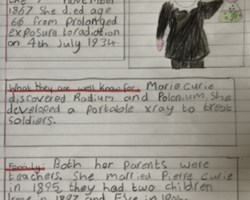 1867 She died age
66 from prolonged
exposure to radiation
on 4th July 1934
What they are well know for. Marie Curie
discovered Radium and Polonium. She
developed a portable xray to treat
soldiers.
Family: Both her parents were
teachers. She married Pierre Curie
in 1895, they had two children